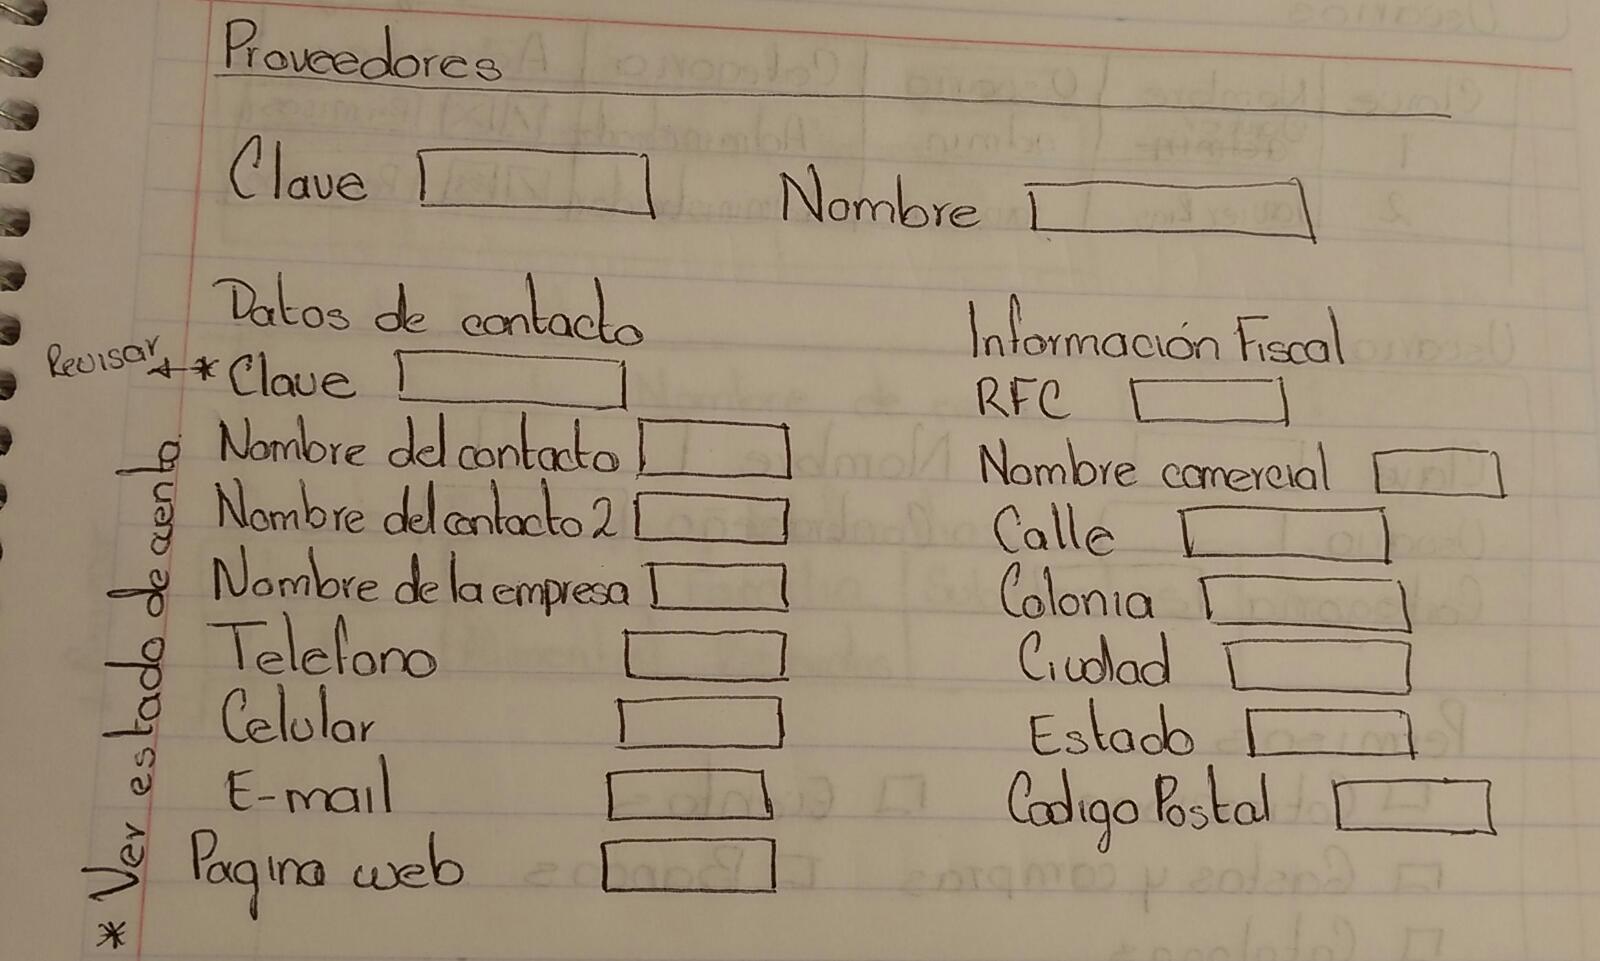 Proveedores
Clave
Nombre
Datos de contacto
Revisar * Clave
Nombre del contacto
Nombre del contacto 2
Nombre de la empresa
Telefono
Celular
E-mail
Pagina web
Información Fiscal
RFC
Nombre comercial
Calle
Colonia
Ciudad
Estado
Codigo Postal
* Ver estado de cuenta